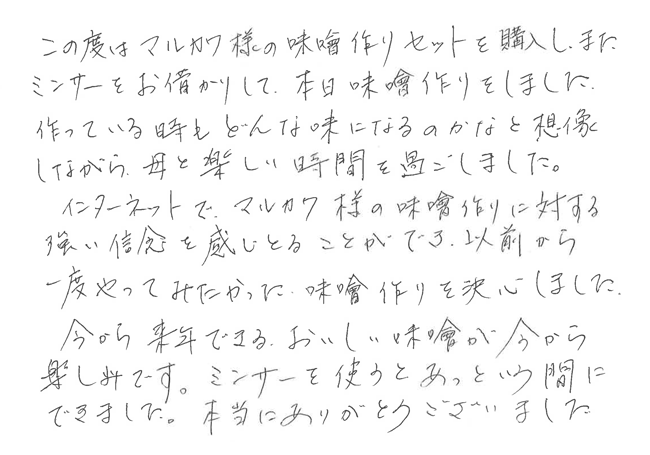 この度はマルカワ様の味噌作りセットを購入し、また
ミンサーをお借かりして、本日味噌作りをしました。
作っている時もどんな味になるのかなと想像
しながら、母と楽しい時間を過ごしました。
インターネットで、マルカワ様の味噌作りに対する
強い信念を感じとることができ、以前から
一度やってみたかった、味噌作りを決心しました。
今から来年できる、おいしい味噌が今から
楽しみです。ミンサーを使うとあっという間に
できました。本当にありがとうございました